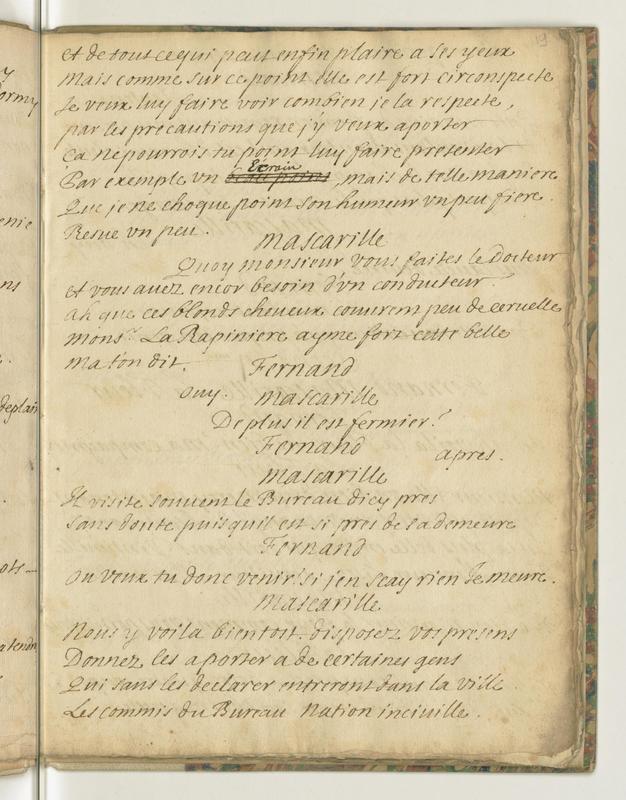 19
et de tout ce qui peut enfin plaire a ses yeux
mais comme sur ce point elle est fort circonspecte
Je veux luy faire voir combien je la respecte,
par les precautions que j'y veux aporter
Ca ne pourrois tu point luy faire presenter
Ecrain
Par exemple vn , mais de telle maniere
Que je ne choque point son humeur vn peu fiere.
Resue vn peu.
mascarille
Quoy monsieur vous faites le docteur
et vous auez encor besoin d'vn conducteur.
ah que ces blonds cheueux couurent peu de ceruelle
monsr. La Rapiniere ayme fort cette belle
ma t'on dit.
Fernand
ouy.
mascarille
De plus il est fermier?
Fernand
apres.
mascarille
Il visite souuent le Bureau dicy pres
sans doute puisquil est si pres de sa demeure
Fernand
ou veux tu donc venir! si j'en scay rien Je meure.
mascarille
Nous y voila bientost. disposez vos presens
Donnez les aporter a de certaines gens
Qui sans les declarer entreront dans la ville
Les commis du Bureau Nation inciuille.